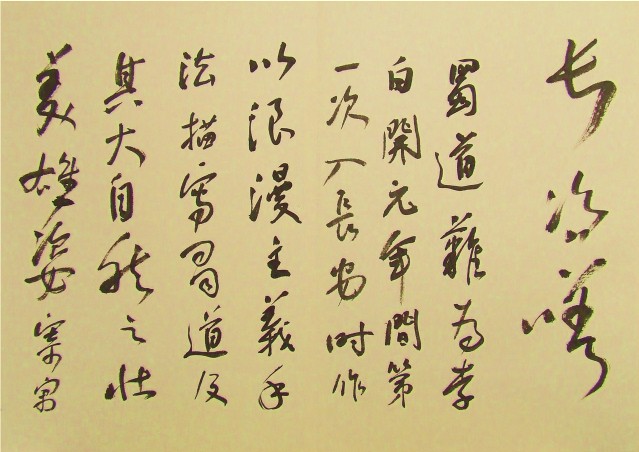 长咨嗟
蜀道難為李
白開元年間第
一次入長安时作
以浪漫主義手
法描寫蜀道及
其大自然之壮
美雄姿